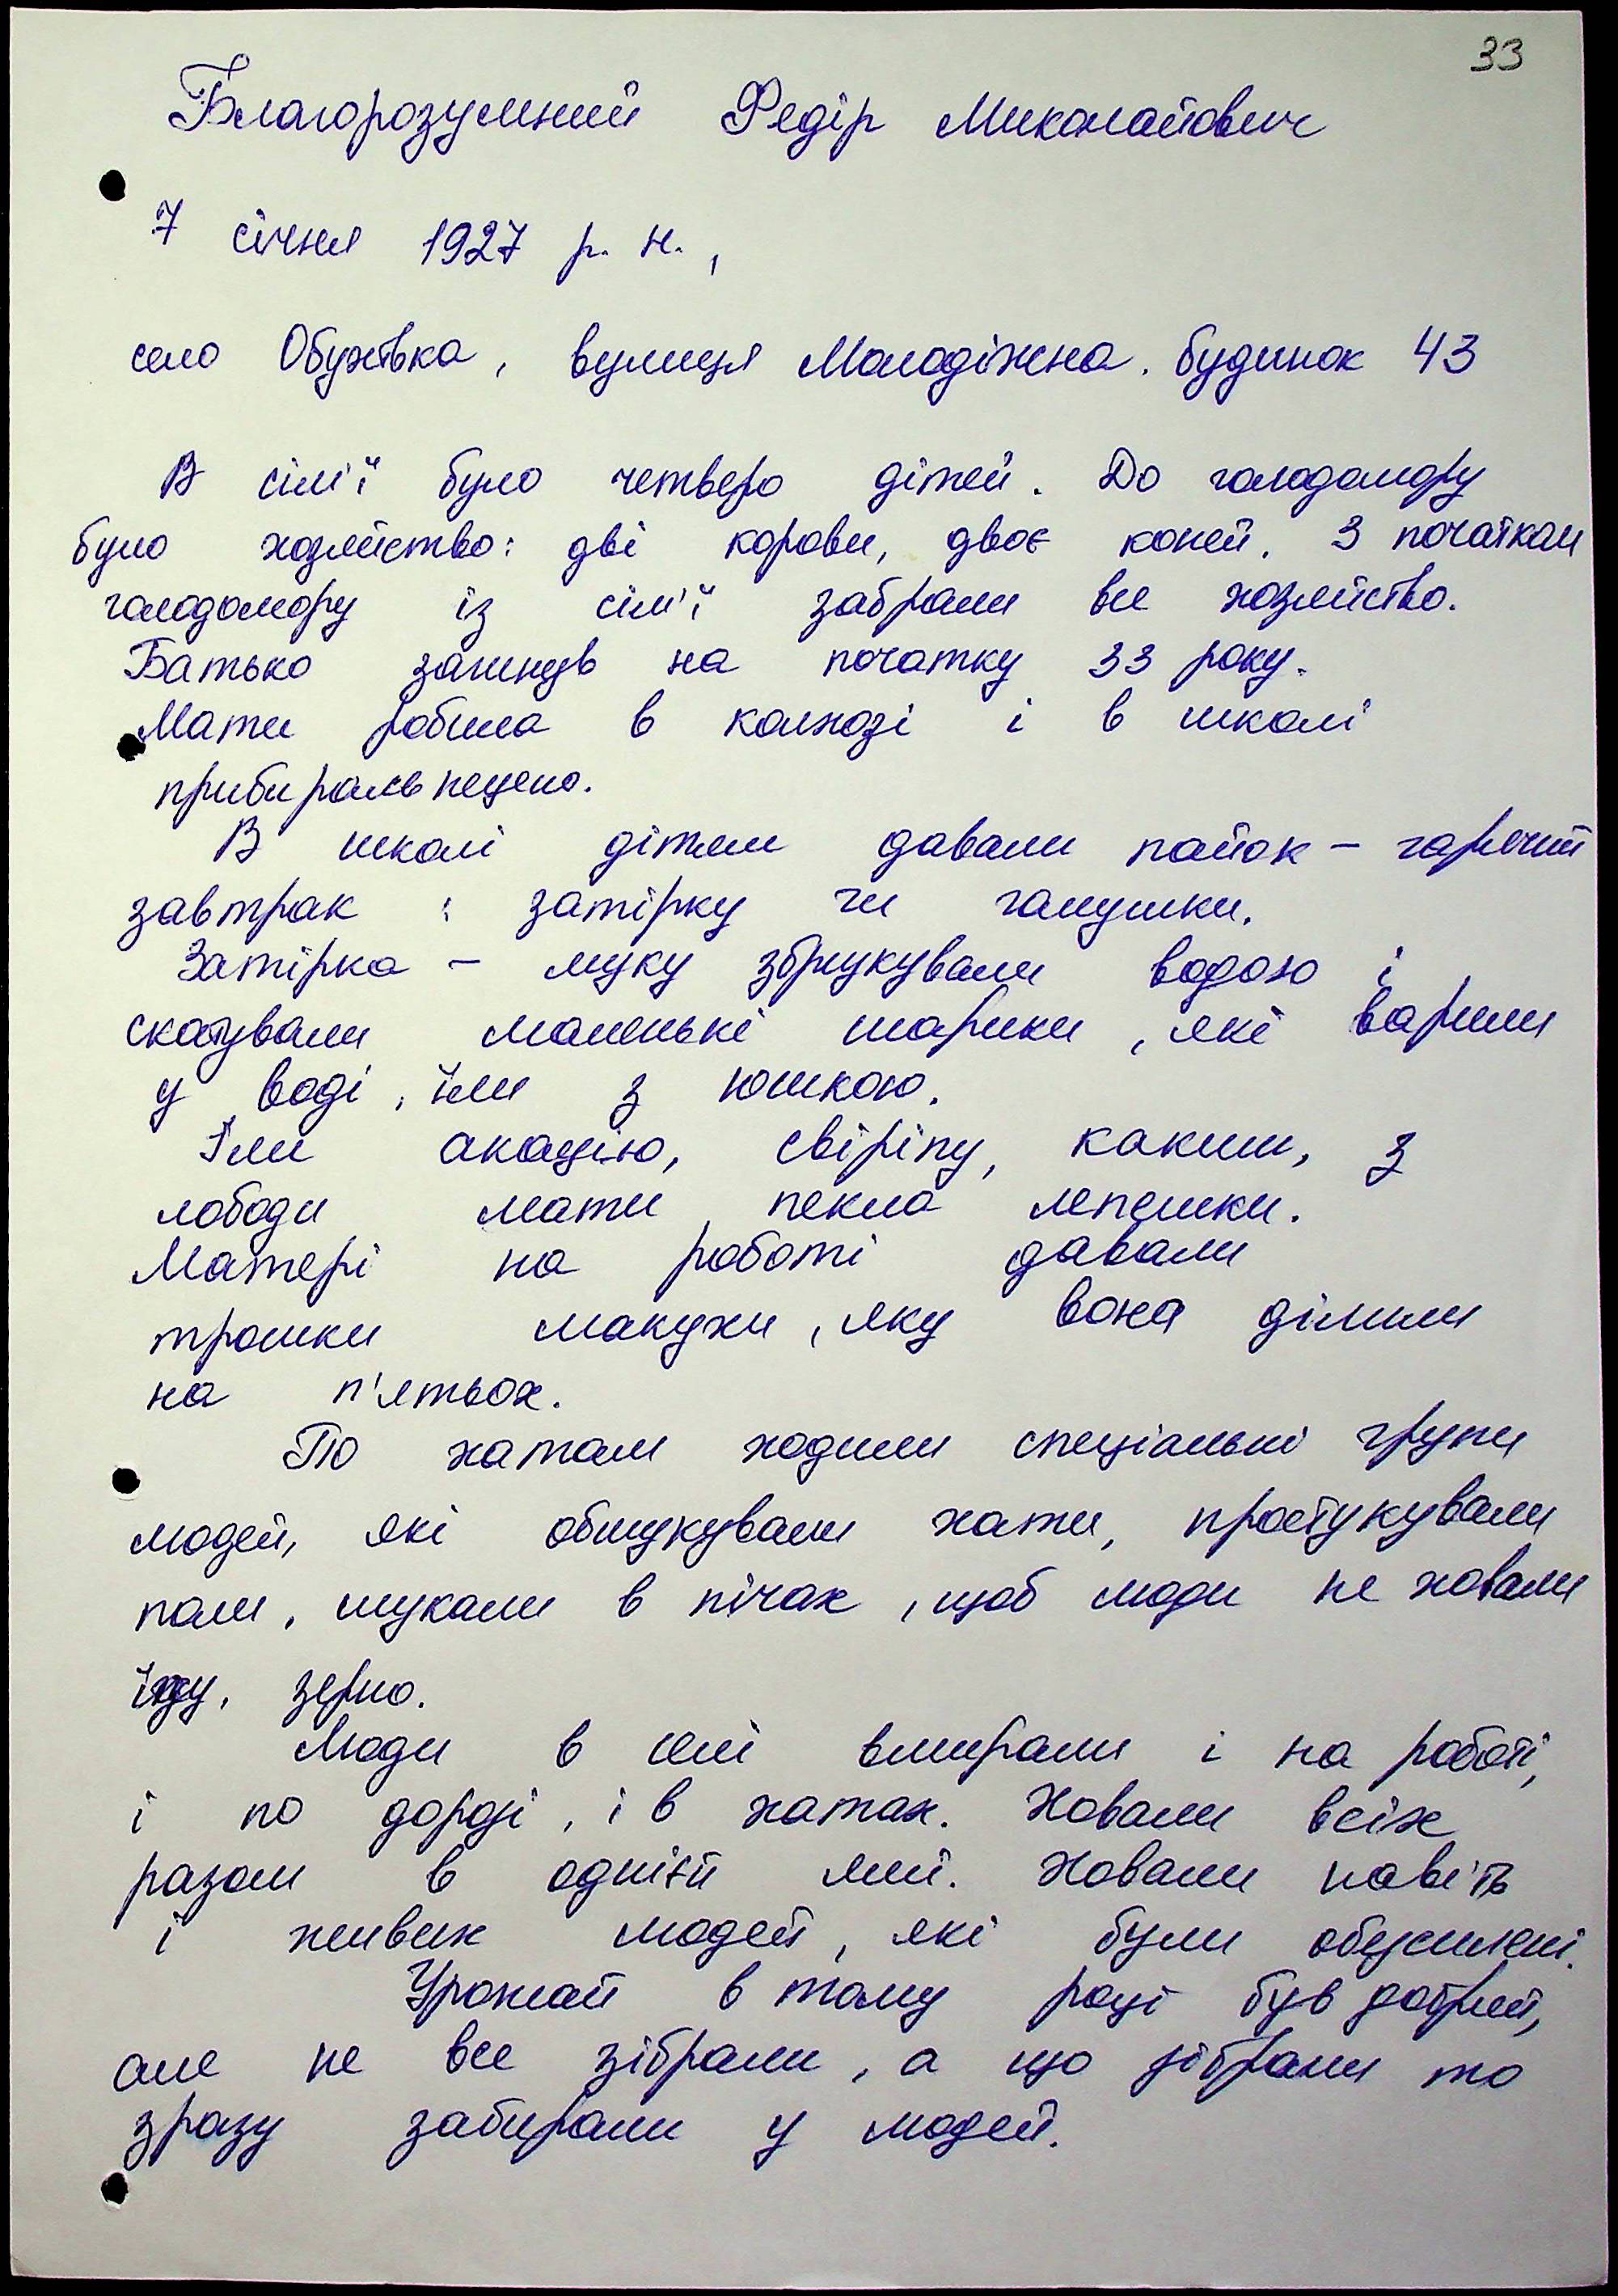 33
Благорозумний Федір Миколайович
7 січня 1927 р. н.,
село Обухівка, вулиця Молодіжна, будинок 43
В сім'ї було четверо дітей. До голодомору
було хозяйство: дві корови, двоє коней. З початком
голодомору із сім'ї забрали все хозяйство.
Батько загинув на початку 33 року.
Мати робила в колхозі і в школі
прибиральницею.
В школі дітям давали пайок – гарячий
завтрак : затірку чи галушки.
Затірка – муку збрикували водою і
скатували маленькі шарики, які варили
у воді, їли з юшкою.
Їли акацію, свіріпу, какиш, з
лободи мати пекла лепешки.
Матері на роботі давали
трошки макухи, яку вона ділили
на п'ятьох.
По хатам ходили спеціальні групи
людей, які обшукували хати, простукували
поли, шукали в пічах, щоб люди не ховали
їжу, зерно.
Люди в селі вмирали і на роботі,
і по дорозі, і в хатах. Ховали всіх
разом в одній ямі. Ховали навіть
і живих людей, які були обузсилені.
Урожай в тому році був добрий,
але не все зібрали, а що зібрали то
зразу забирали у людей.